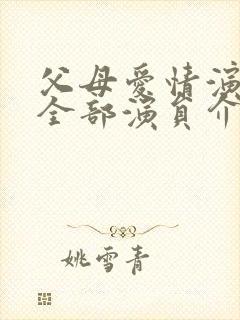 父母爱情演
全部演员介
姚雪青